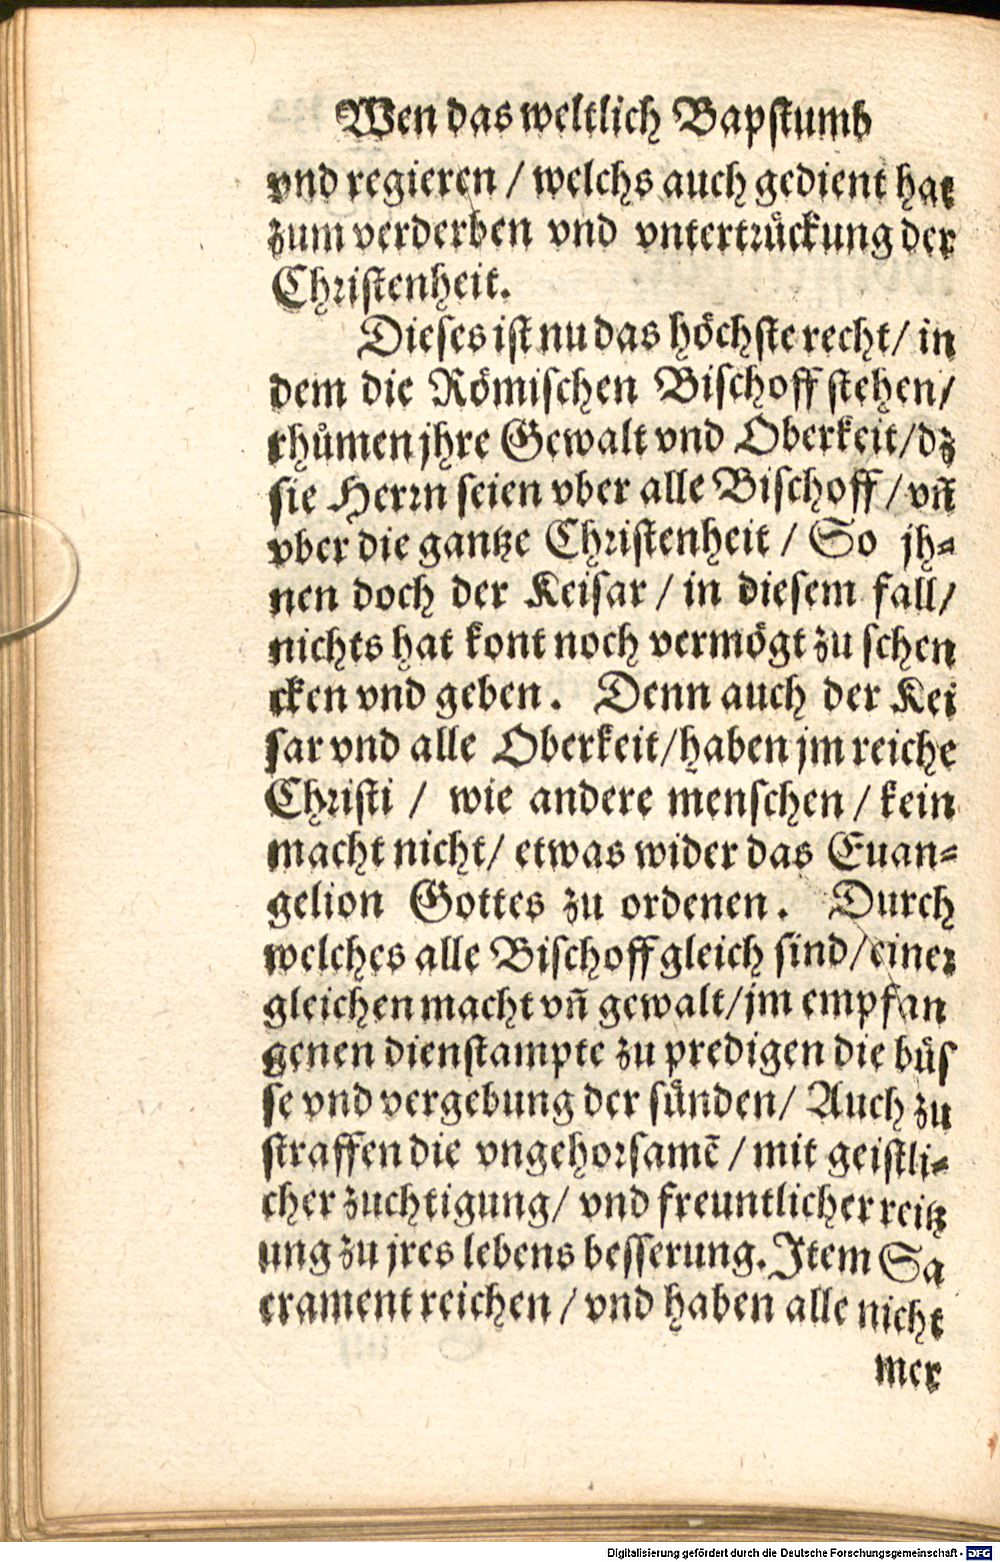 Wen das weltlich Bapstumb
vnd regieren / welchs auch gedient hat
zum verderben vnd vntertrückung der
Christenheit.
Dieses ist nu das höchste recht / in
dem die Römischen Bischoff stehen /
rhümen jhre Gewalt vnd Oberkeit / dz
sie Herrn seien vber alle Bischoff / vñ
vber die gantze Christenheit / So jh=
nen doch der Keisar / in diesem fall /
nichts hat kont noch vermögt zu schen
cken vnd geben. Denn auch der Kei
sar vnd alle Oberkeit / haben jm reiche
Christi / wie andere menschen / kein
macht nicht / etwas wider das Euan=
gelion Gottes zu ordenen. Durch
welches alle Bischoff gleich sind / einer
gleichen macht vñ gewalt / jm empfan
genen dienstampte zu predigen die büs
se vnd vergebung der sünden / Auch zu
straffen die vngehorsamē / mit geistli=
cher zuchtigung / vnd freuntlicher reitz
ung zu jres lebens besserung. Item Sa
crament reichen / vnd haben alle nicht
mer
Digitalisierung gefördert durch die Deutsche Forschungsgemeinschaft - DFG